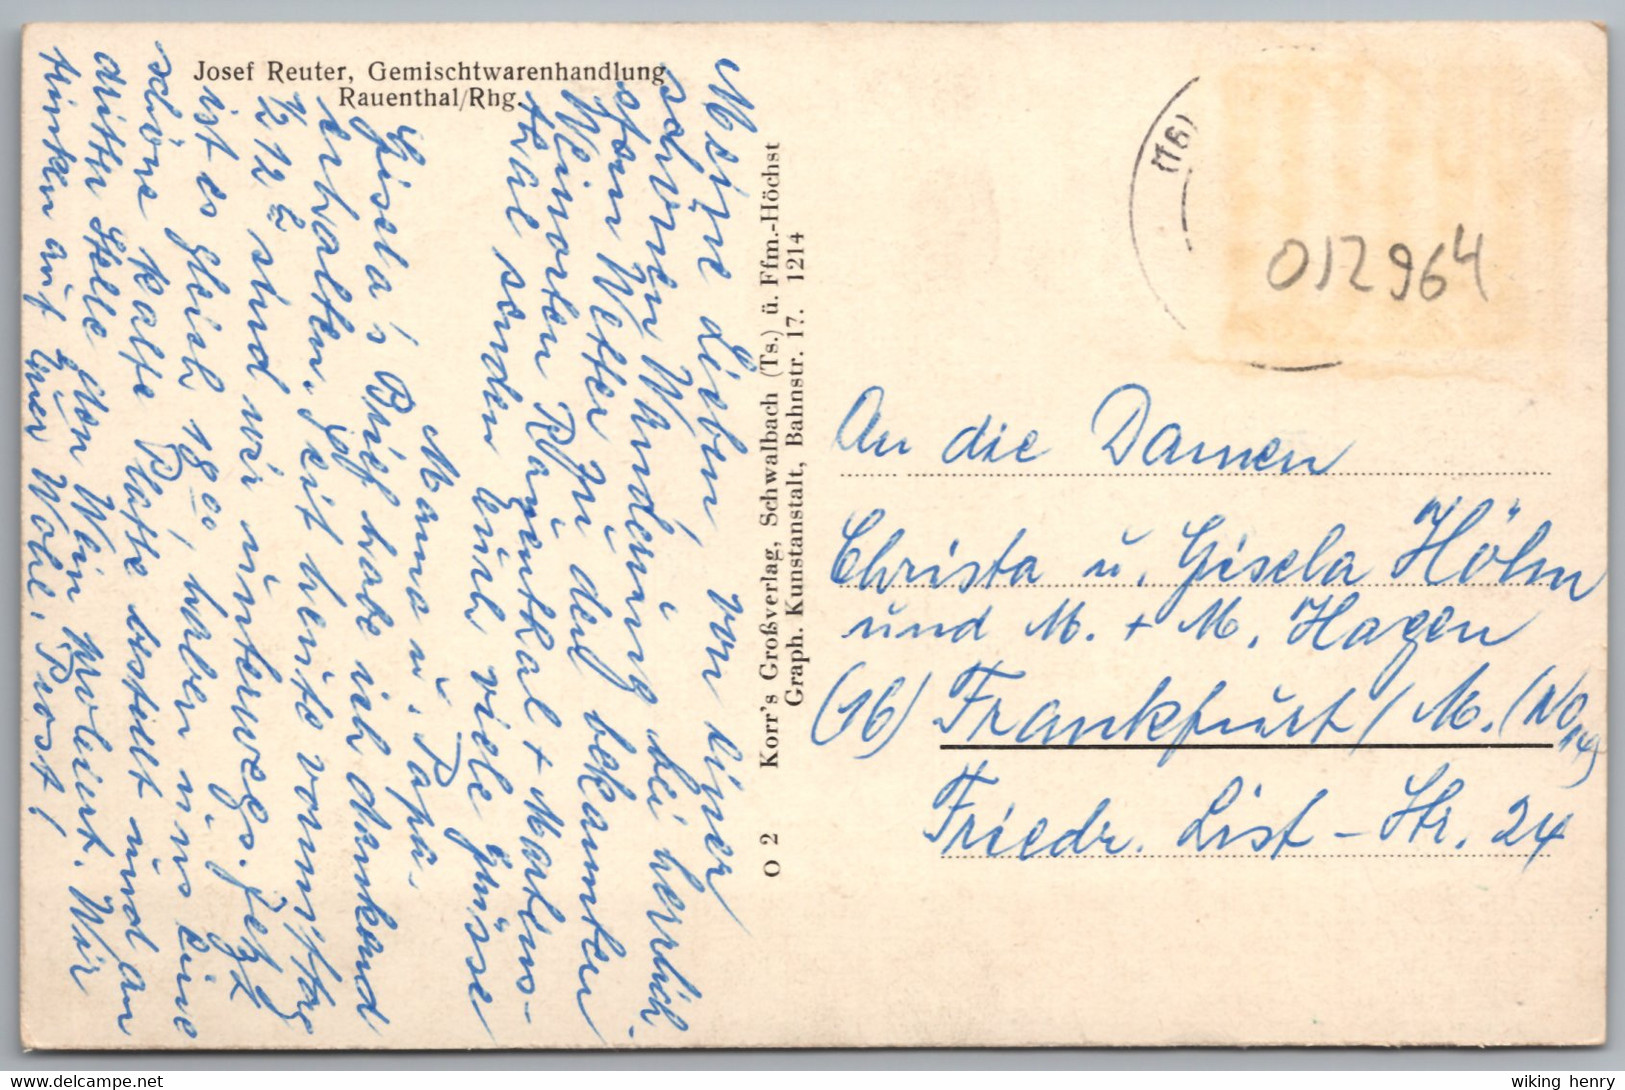 Josef Reuter, Gemischtwarenhandlung
Rauenthal/Rhg.
Meine Lieben! von einer
schönen Wanderung bei herrlich-
stem Wetter zu den bekannten
Weinorten Rauenthal + Martins-
thal senden Euch viele Grüsse
Mama u. Papa.
Gisela's Brief habe ich dankend
erhalten. Seit heute vormittag
½ 12 sind wir unterwegs. Jetzt
ist es gleich 18⁰⁰, haben uns eine
schöne kalte Platte bestellt und an
dritter Stelle den Wein probiert. Wir
trinken auf Euer Wohl. Prost!
O 2 Korr's Großverlag, Schwalbach (Ts.) ü. Ffm.-Höchst
Graph. Kunstanstalt, Bahnstr. 17. 1214
(16)
012964
An die Damen
Christa u. Gisela Höhn
und M. + M. Hagen
(16) Frankfurt/M. (NO 14)
Friedr. List-Str. 24
wiking henry